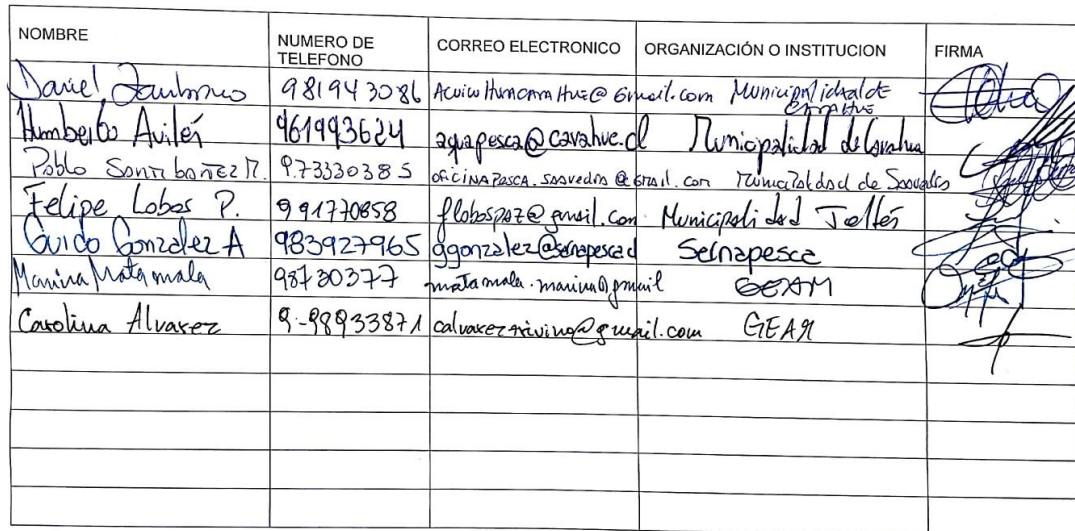 NOMBRE NUMERO DE TELEFONO CORREO ELECTRONICO ORGANIZACIÓN O INSTITUCION FIRMA
Daniel 981943086 Municipalidad de
Humberto Avilés 961993624 aquapesca@carahue.cl Municipalidad de Carahue
Pablo Santibañez M. 9.73330385 oficinapesca.saavedra@gmail.com Municipalidad de Saavedra
Felipe Lobos P. 991770858 flobospaz@gmail.com Municipalidad Toltén
Guido González A 983927965 ggonzalez@sernapesca.cl Sernapesca
Marina Matamala 98730377 matamala.marina@gmail GEAM
Carolina Alvarez 9-98933871 GEAM